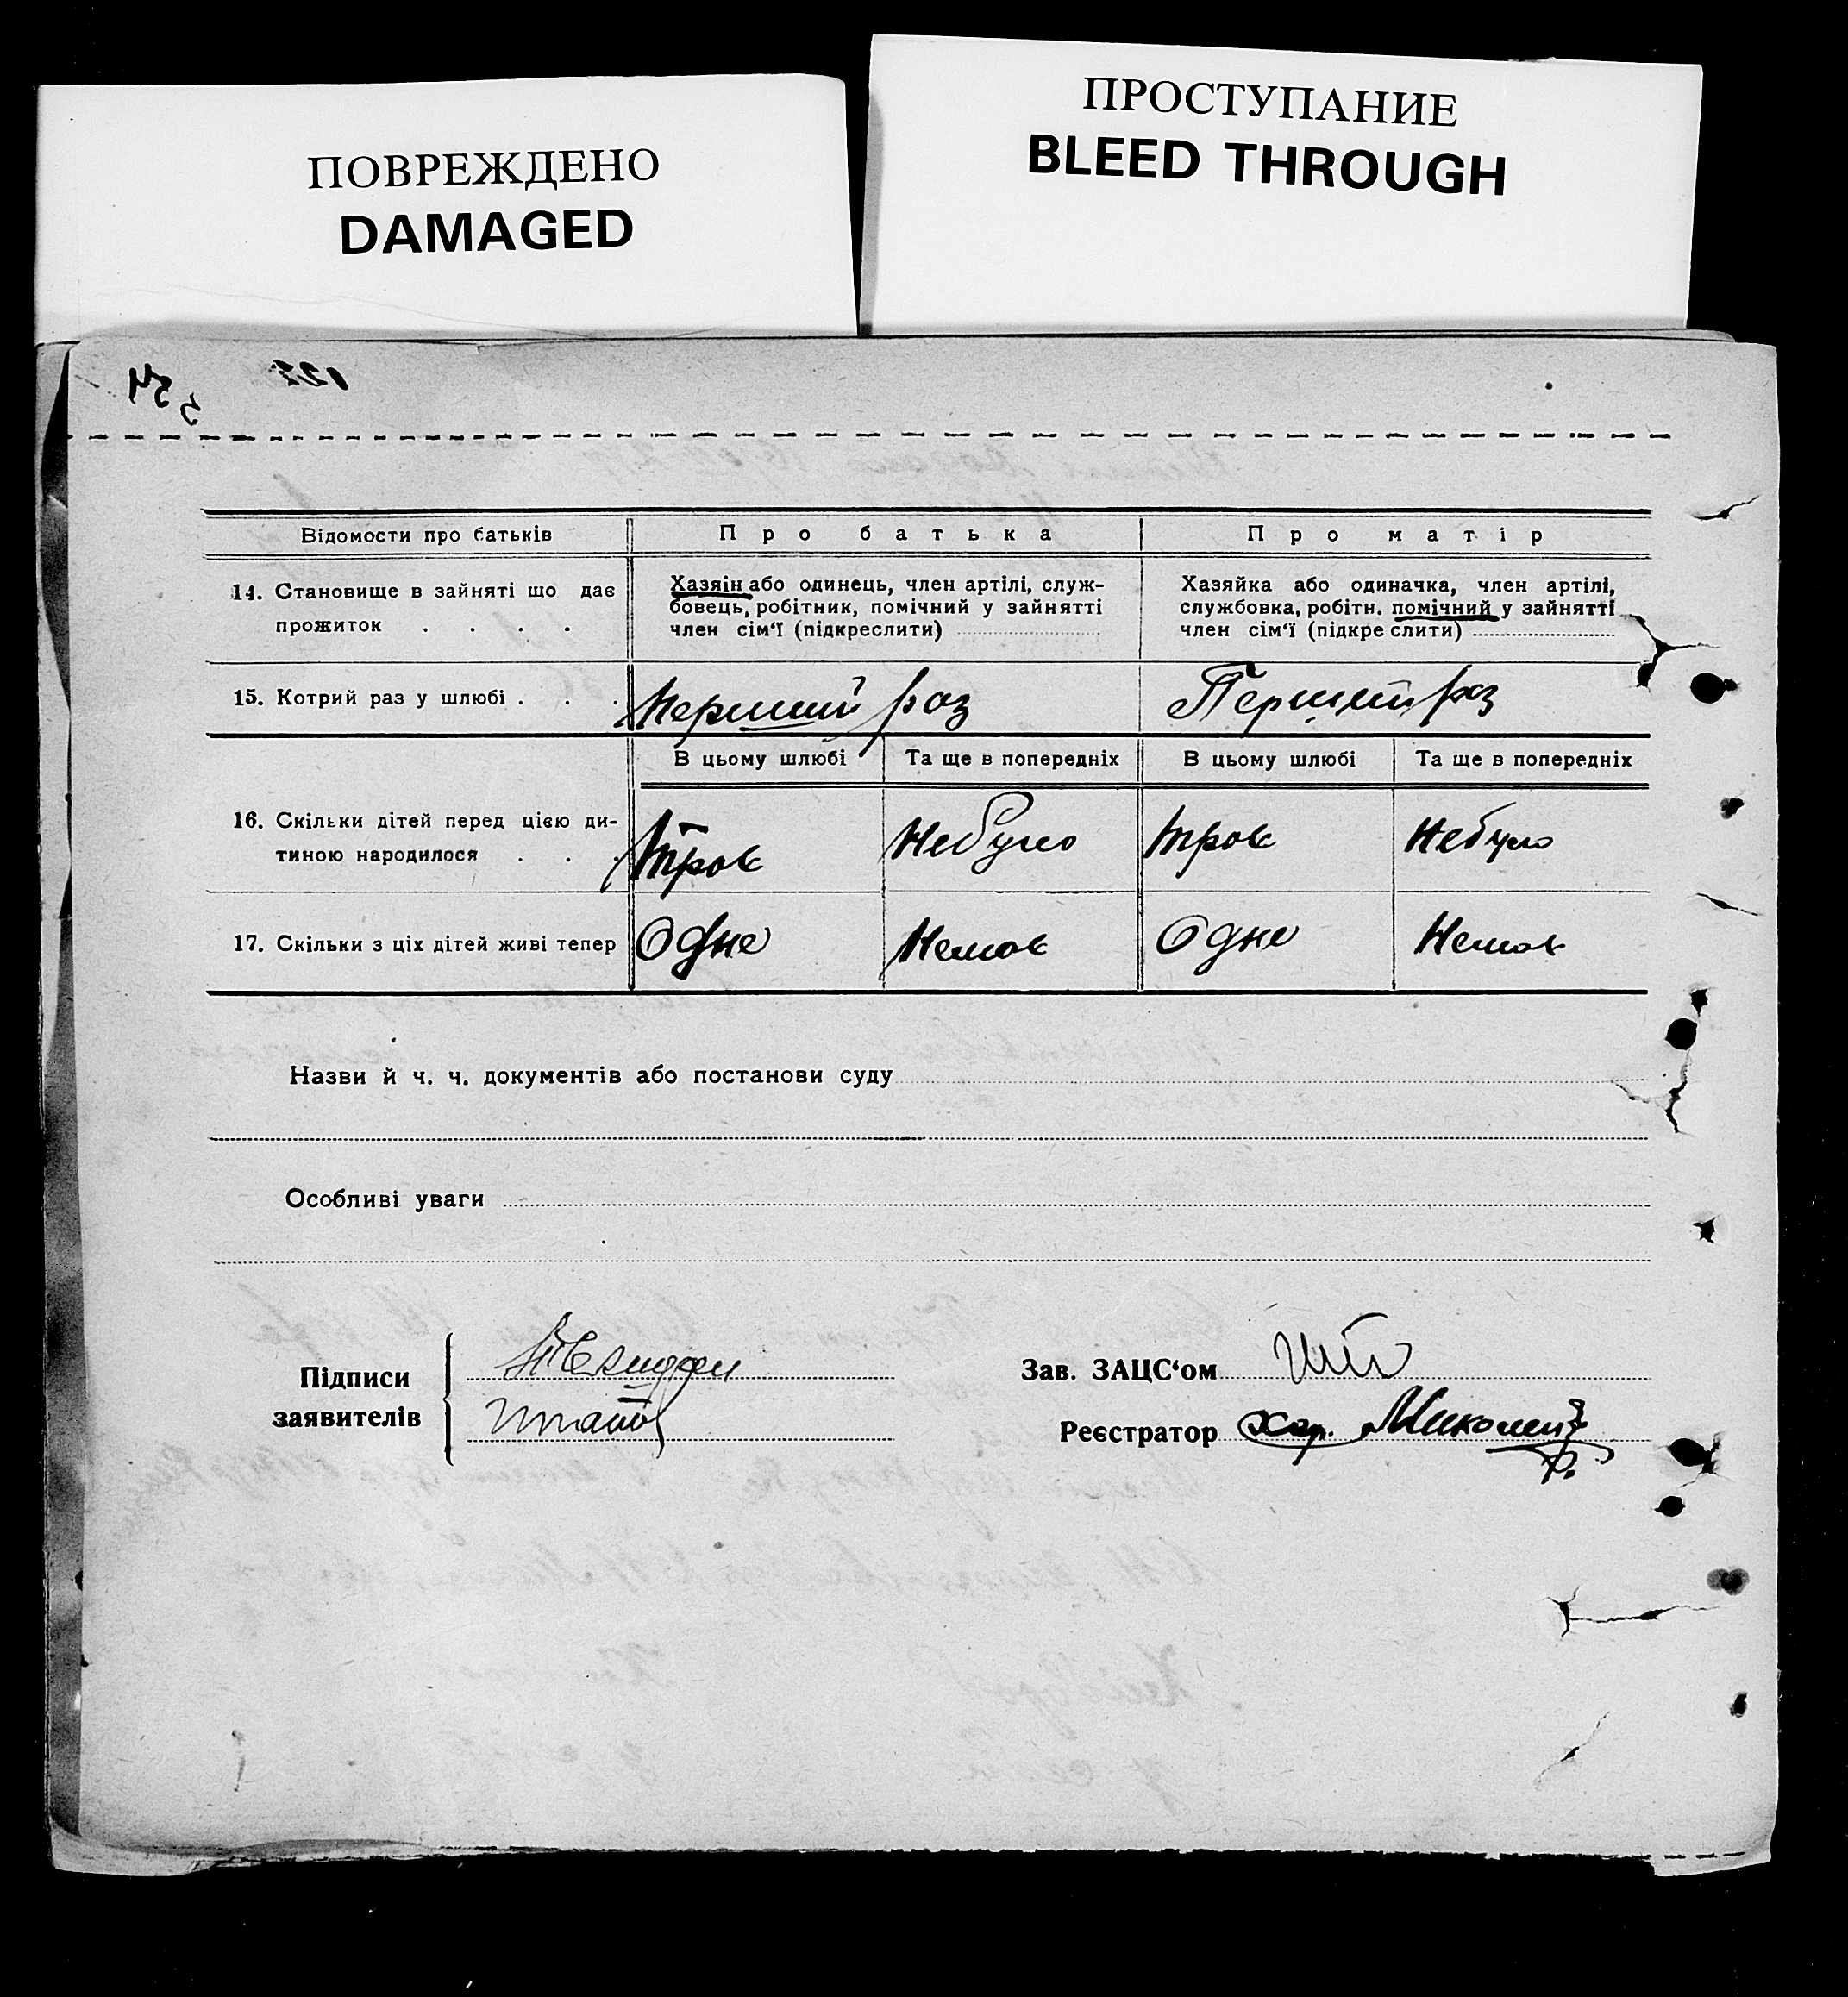 ПОВРЕЖДЕНО
DAMAGED
ПРОСТУПАНИЕ
BLEED THROUGH
Відомости про батьків
Про батька
Про матір
14. Становище в зайняті що дає
прожиток . . . .
Хазяін або одинець, член артілі, служ-
бовець, робітник, помічний у зайнятті
член сім‘ї (підкреслити)
Хазяйка або одиначка, член артілі,
службовка, робітн. помічний у зайнятті
член сім‘ї (підкреслити)
15. Котрий раз у шлюбі . . .
Перший раз
Перший раз
В цьому шлюбі
Та ще в попередніх
В цьому шлюбі
Та ще в попередніх
16. Скільки дітей перед цією ди-
тиною народилося . . .
Троє
Небуло
троє
Небуло
17. Скільки з ціх дітей живі тепер
Одне
Немає
Одне
Немає
Назви й ч. ч. документів або постанови суду
Особливі уваги
Підписи
заявителів
Зав. ЗАЦС‘ом
Реєстратор